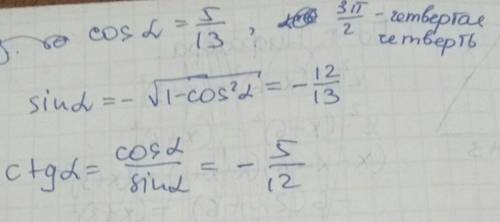 cosα = 5/13, 3π/2 - четвертая
четверть
sinα = - √(1-cos²α) = - 12/13
ctgα = cosα/sinα = - 5/12